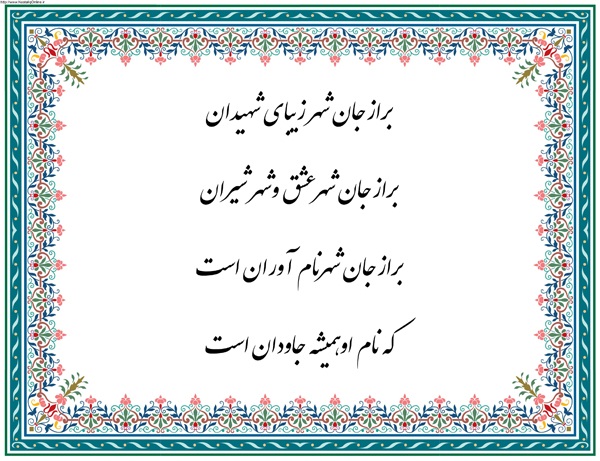 برازجان شهر زیبای شهیدان
برازجان شهر عشق و شهر شیران
برازجان شهر نام آوران است
که نام او همیشه جاودان است